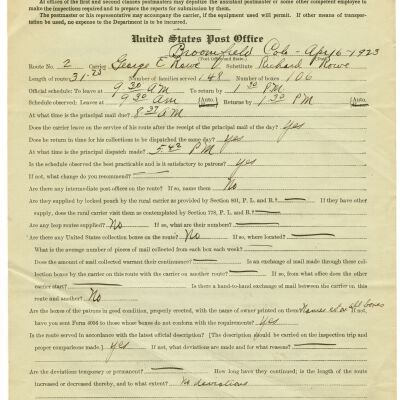 offices of the first and second classes postmasters may deputize the assistant postmaster or some other competent employee to
make the inspections required and to prepare the reports for submission by them.
The postmaster or his representative may accompany the carrier, if the equipment used will permit. If other means of transportation
be used, no expense to the Department is to be incurred.
United States Post Office
Broomfield Colo - Apr 6 - 1923
(Post Office and State)
Route No. 2 Carrier George E Rowe Substitute Richard Rowe
Length of route 31.25 Number of families served 148 Number of boxes 106
Official Schedule: To leave at 9 30 AM To return by 1 30 PM
Schedule observed: Leaves at 9 30 am {Auto. Returns by 1 30 PM {Auto.
At what time is the principal mail due? 8 37 AM
Does the carrier leave on the service of his route after the receipt of the principal mail of the day? yes
Does he return in time for his collections to be dispatched the same day? yes
At what time is the principal dispatch made? 5.42 PM
Is the schedule observed the best practicable and is it satisfactory to patrons? yes
If not, what change do you recommend?
Are there any intermediate post offices on the route? If so, name them No
Are they supplied by locked pouch by the rural carrier as provided by Section 801, P. L. and R.? If they have other
supply, does the rural carrier visit them as contemplated by Section 778, P. L. and R.?
Are any loop routes supplied? No If so, what are their numbers?
Are there any United States collection boxes on the route? No If so, where located?
What is the average number of pieces of mail collected from each box each week?
Does the amount of mail collected warrant their continuance? Is an exchange of mail made through these col-
lection boxes by the carrier on this route with the carrier on another route? If so, from what office does the other
carrier start? Is there a hand-to-hand exchange of mail between the carrier on this
route and another? No
Are the boxes of the patrons in good condition, properly erected, with the name of owner printed on them? Names not on all boxes If not,
have you sent Form 4056 to those whose boxes do not conform with the requirements? yes
Is the route served in accordance with the latest official description? [The description should be carried on the inspection trip and
proper comparisons made.] yes If not, what deviations are made and for what reasons?
Are the deviations temporary or permanent? How long have they continued; is the length of the route
increased or decreased thereby, and to what extent? No deviations